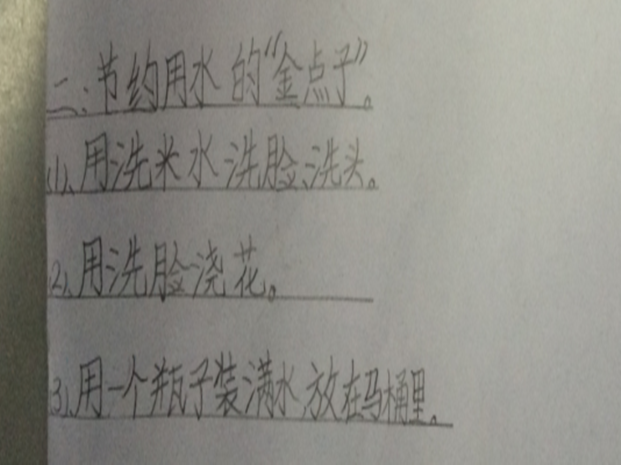 二、节约用水的“金点子”。
(1)、用洗米水洗脸、洗头。
(2)、用洗脸浇花。
(3)、用一个瓶子装满水放在马桶里。